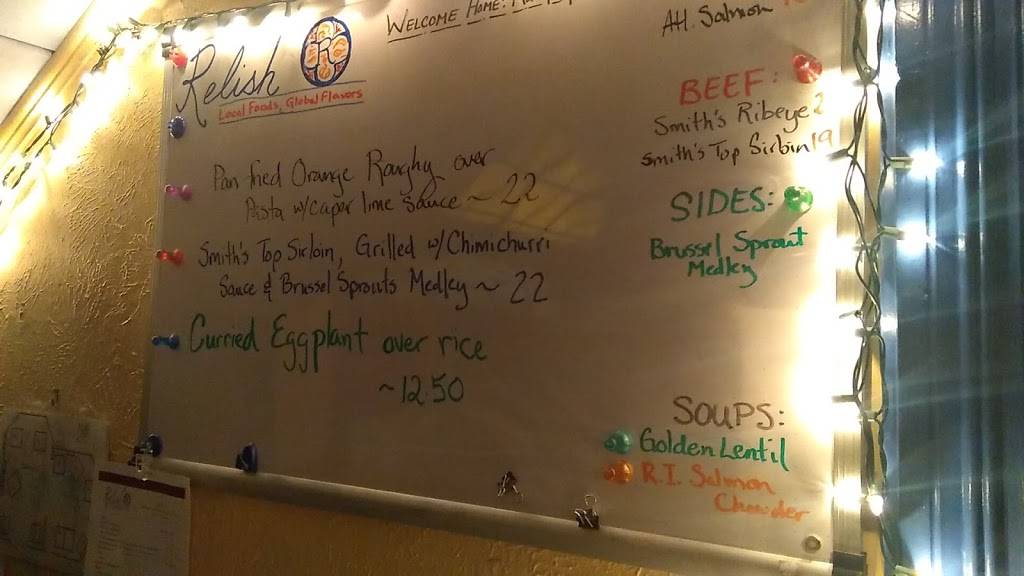 Relish
Local Foods, Global Flavors
WELCOME HOME:
Pan fried Orange Roughy over
Pasta w/caper lime sauce ~ 22
Smith's Top Sirloin, Grilled w/Chimichurri
Sauce & Brussel Sprouts Medley ~ 22
Curried Eggplant over rice
~12.50
Atl. Salmon
BEEF:
Smith's Ribeye 2
Smith's Top Sirloin 19
SIDES:
Brussel Sprout
Medley
SOUPS:
Golden Lentil
R.I. Salmon
Chowder